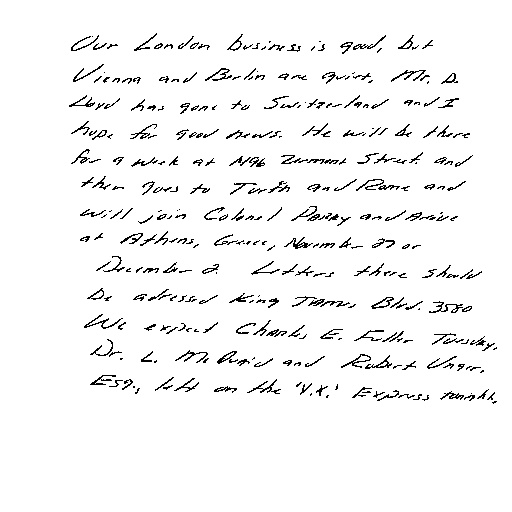 Our London business is good, but
Vienna and Berlin are quiet. Mr. D.
Lloyd has gone to Switzerland and I
hope for good news. He will be there
for a week at 1496 Zermont Street and
then goes to Turin and Rome and
will join Colonel Parry and arrive
at Athens, Greece, November 27 or
December 2. Letters there should
be adressed King James Blvd. 3580
We expect Charles E. Fuller Tuesday.
Dr. L. McQuaid and Robert Unger,
Esq., left on the 'Y.X.' Express tonight.